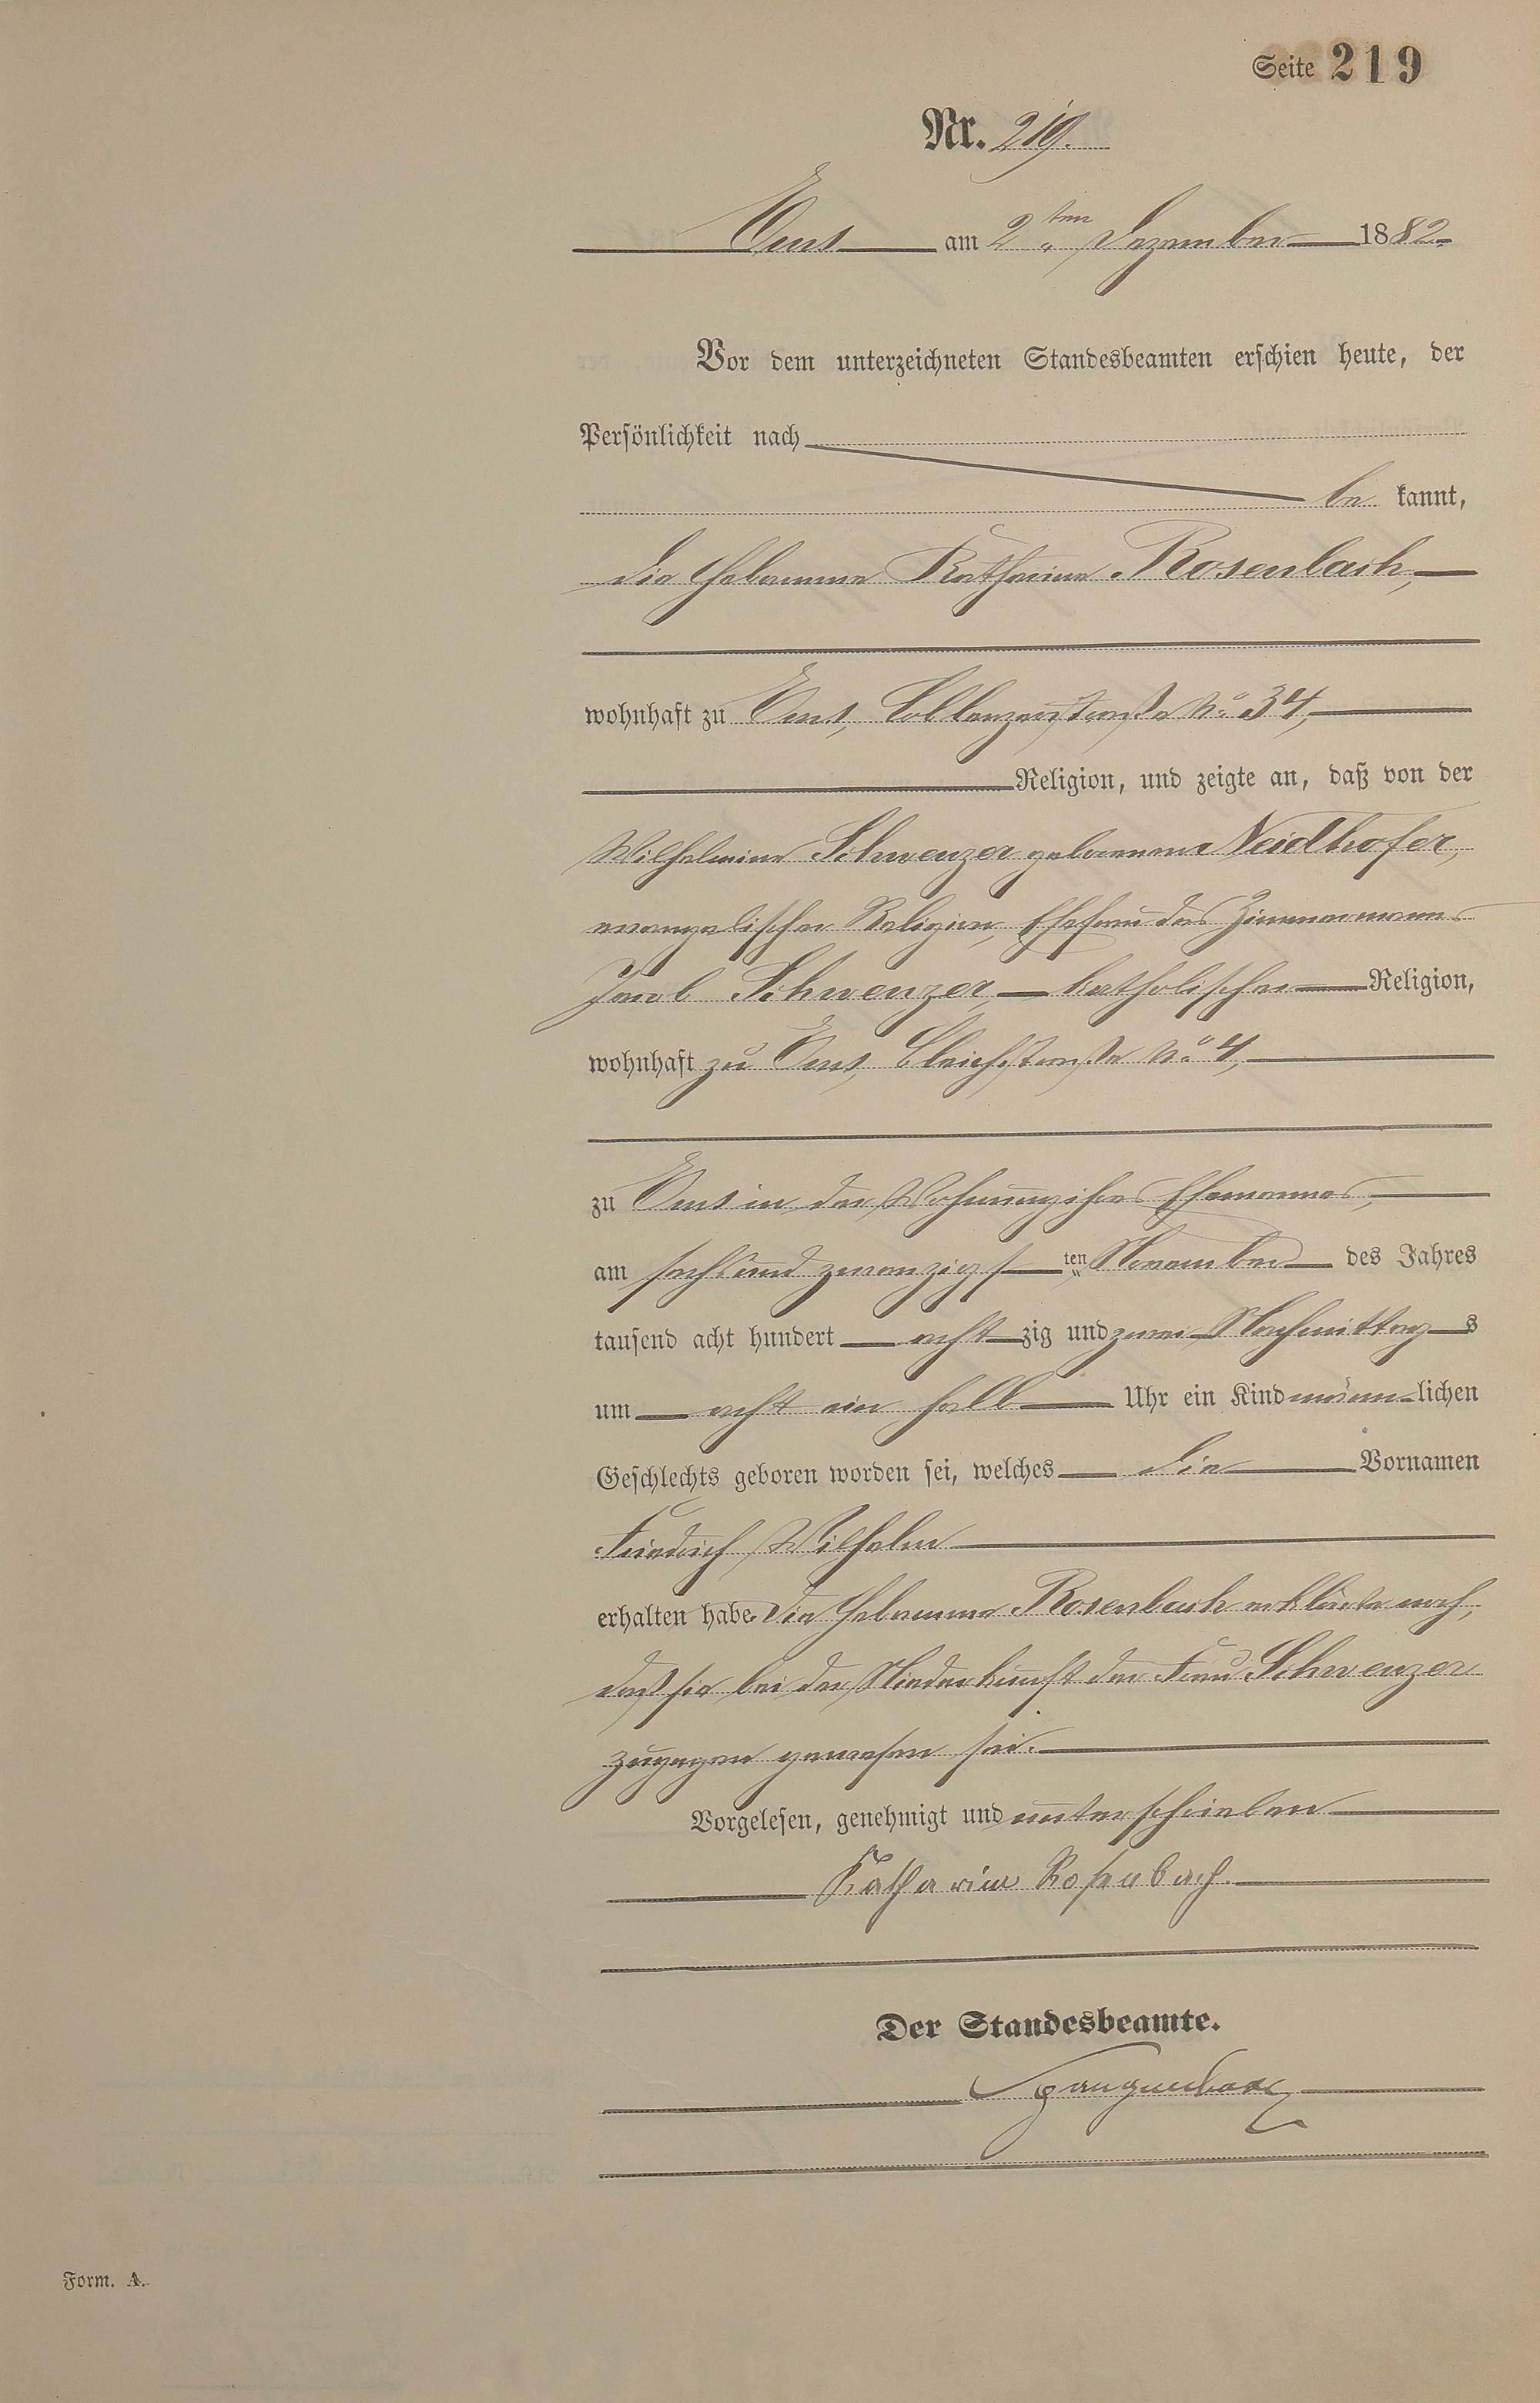 Seite 219
Nr. 219.
Ems am 2ten Dezember 1882.
Vor dem unterzeichneten Standesbeamten erschien heute, der
Persönlichkeit nach
be kannt,
die Hebamme Katharine Rosenbach,
wohnhaft zu Ems, Coblenzerstraße No 34,
Religion, und zeigte an, daß von der
Wilhelmine Schwenzer geborenen Neidhofer,
evangelischer Religion, Ehefrau des Zimmermanns
Jacob Schwenzer, katholischer Religion,
wohnhaft zu Ems, Bleichstraße No 4,
zu Ems in der Wohnung ihres Ehemannes,
am sechsundzwanzigsten November des Jahres
tausend acht hundert achtzig und zwei Nachmittags
um acht ein halb Uhr ein Kind männlichen
Geschlechts geboren worden sei, welches die Vornamen
Friedrich Wilhelm
erhalten habe. Die Hebamme Rosenbach erklärte noch,
daß sie bei der Niederkunft der Frau Schwenzer
zugegen gewesen sei.
Vorgelesen, genehmigt und unterschrieben
Katharine Rosenbach.
Der Standesbeamte.
Form. A.